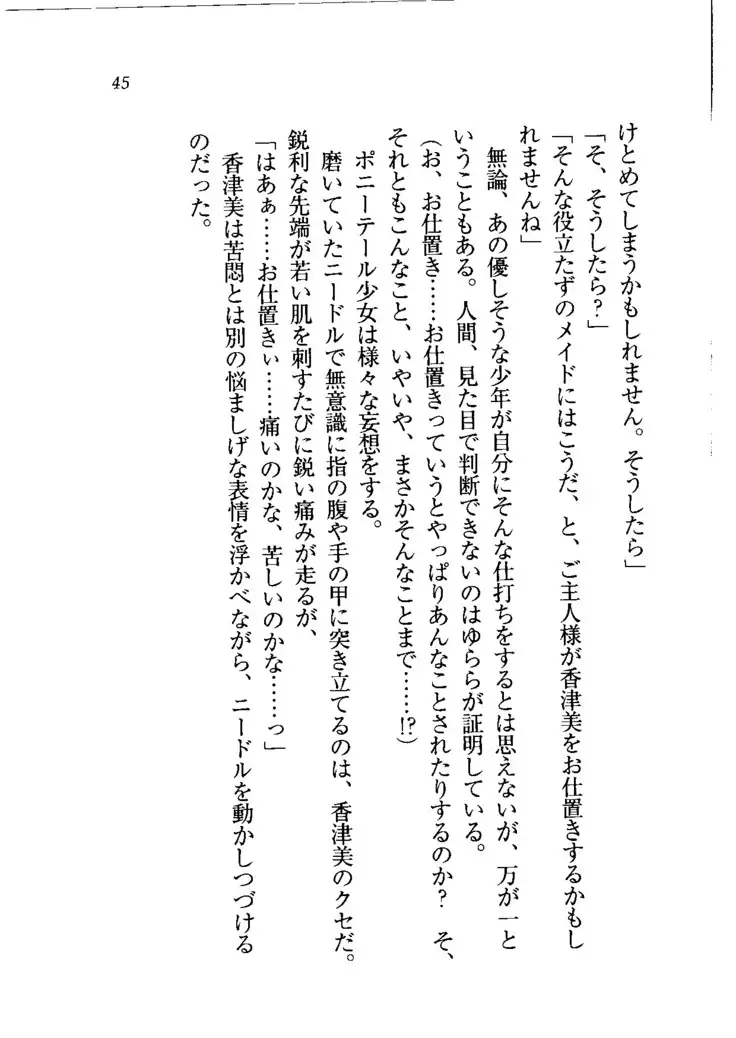 45
けとめてしまうかもしれません。そうしたら」
「そ、そうしたら？」
「そんな役立たずのメイドにはこうだ、と、ご主人様が香津美をお仕置きするかもし
れませんね」
無論、あの優しそうな少年が自分にそんな仕打ちをするとは思えないが、万が一と
いうこともある。人間、見た目で判断できないのはゆららが証明している。
（お、お仕置き……お仕置きっていうとやっぱりあんなことされたりするのか？　そ、
それともこんなこと、いやいや、まさかそんなことまで……!?）
ポニーテール少女は様々な妄想をする。
磨いていたニードルで無意識に指の腹や手の甲に突き立てるのは、香津美のクセだ。
鋭利な先端が若い肌を刺すたびに鋭い痛みが走るが、
「はあぁ……お仕置きぃ……痛いのかな、苦しいのかな……っ」
香津美は苦悶とは別の悩ましげな表情を浮かべながら、ニードルを動かしつづける
のだった。